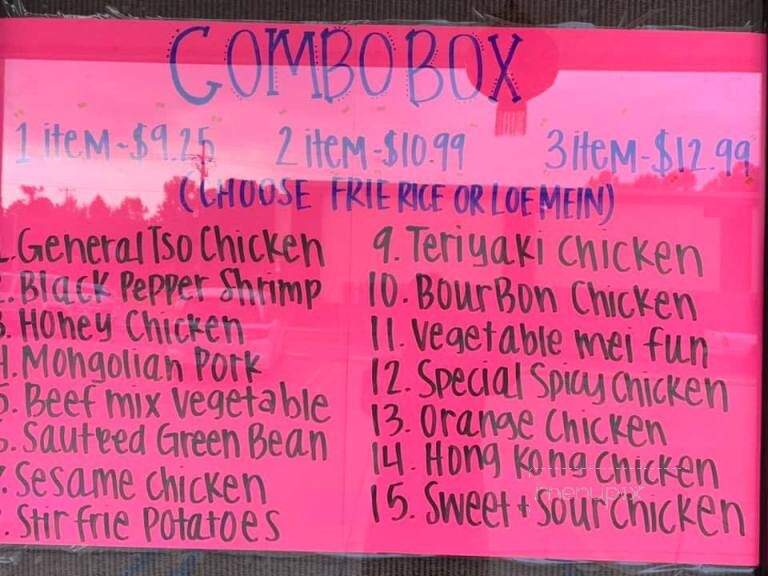 COMBO BOX
1 item-$9.25 2 item-$10.99 3 item-$12.99
(CHOOSE FRIE RICE OR LOE MEIN)
1. General Tso Chicken
2. Black Pepper Shrimp
3. Honey Chicken
4. Mongolian Pork
5. Beef mix Vegetable
6. Sauteed Green Bean
7. Sesame chicken
8. Stir frie Potatoes
9. Teriyaki chicken
10. Bourbon Chicken
11. Vegetable mei fun
12. Special Spicy Chicken
13. Orange Chicken
14. Hong Kong Chicken
15. Sweet + Sour Chicken
menupix